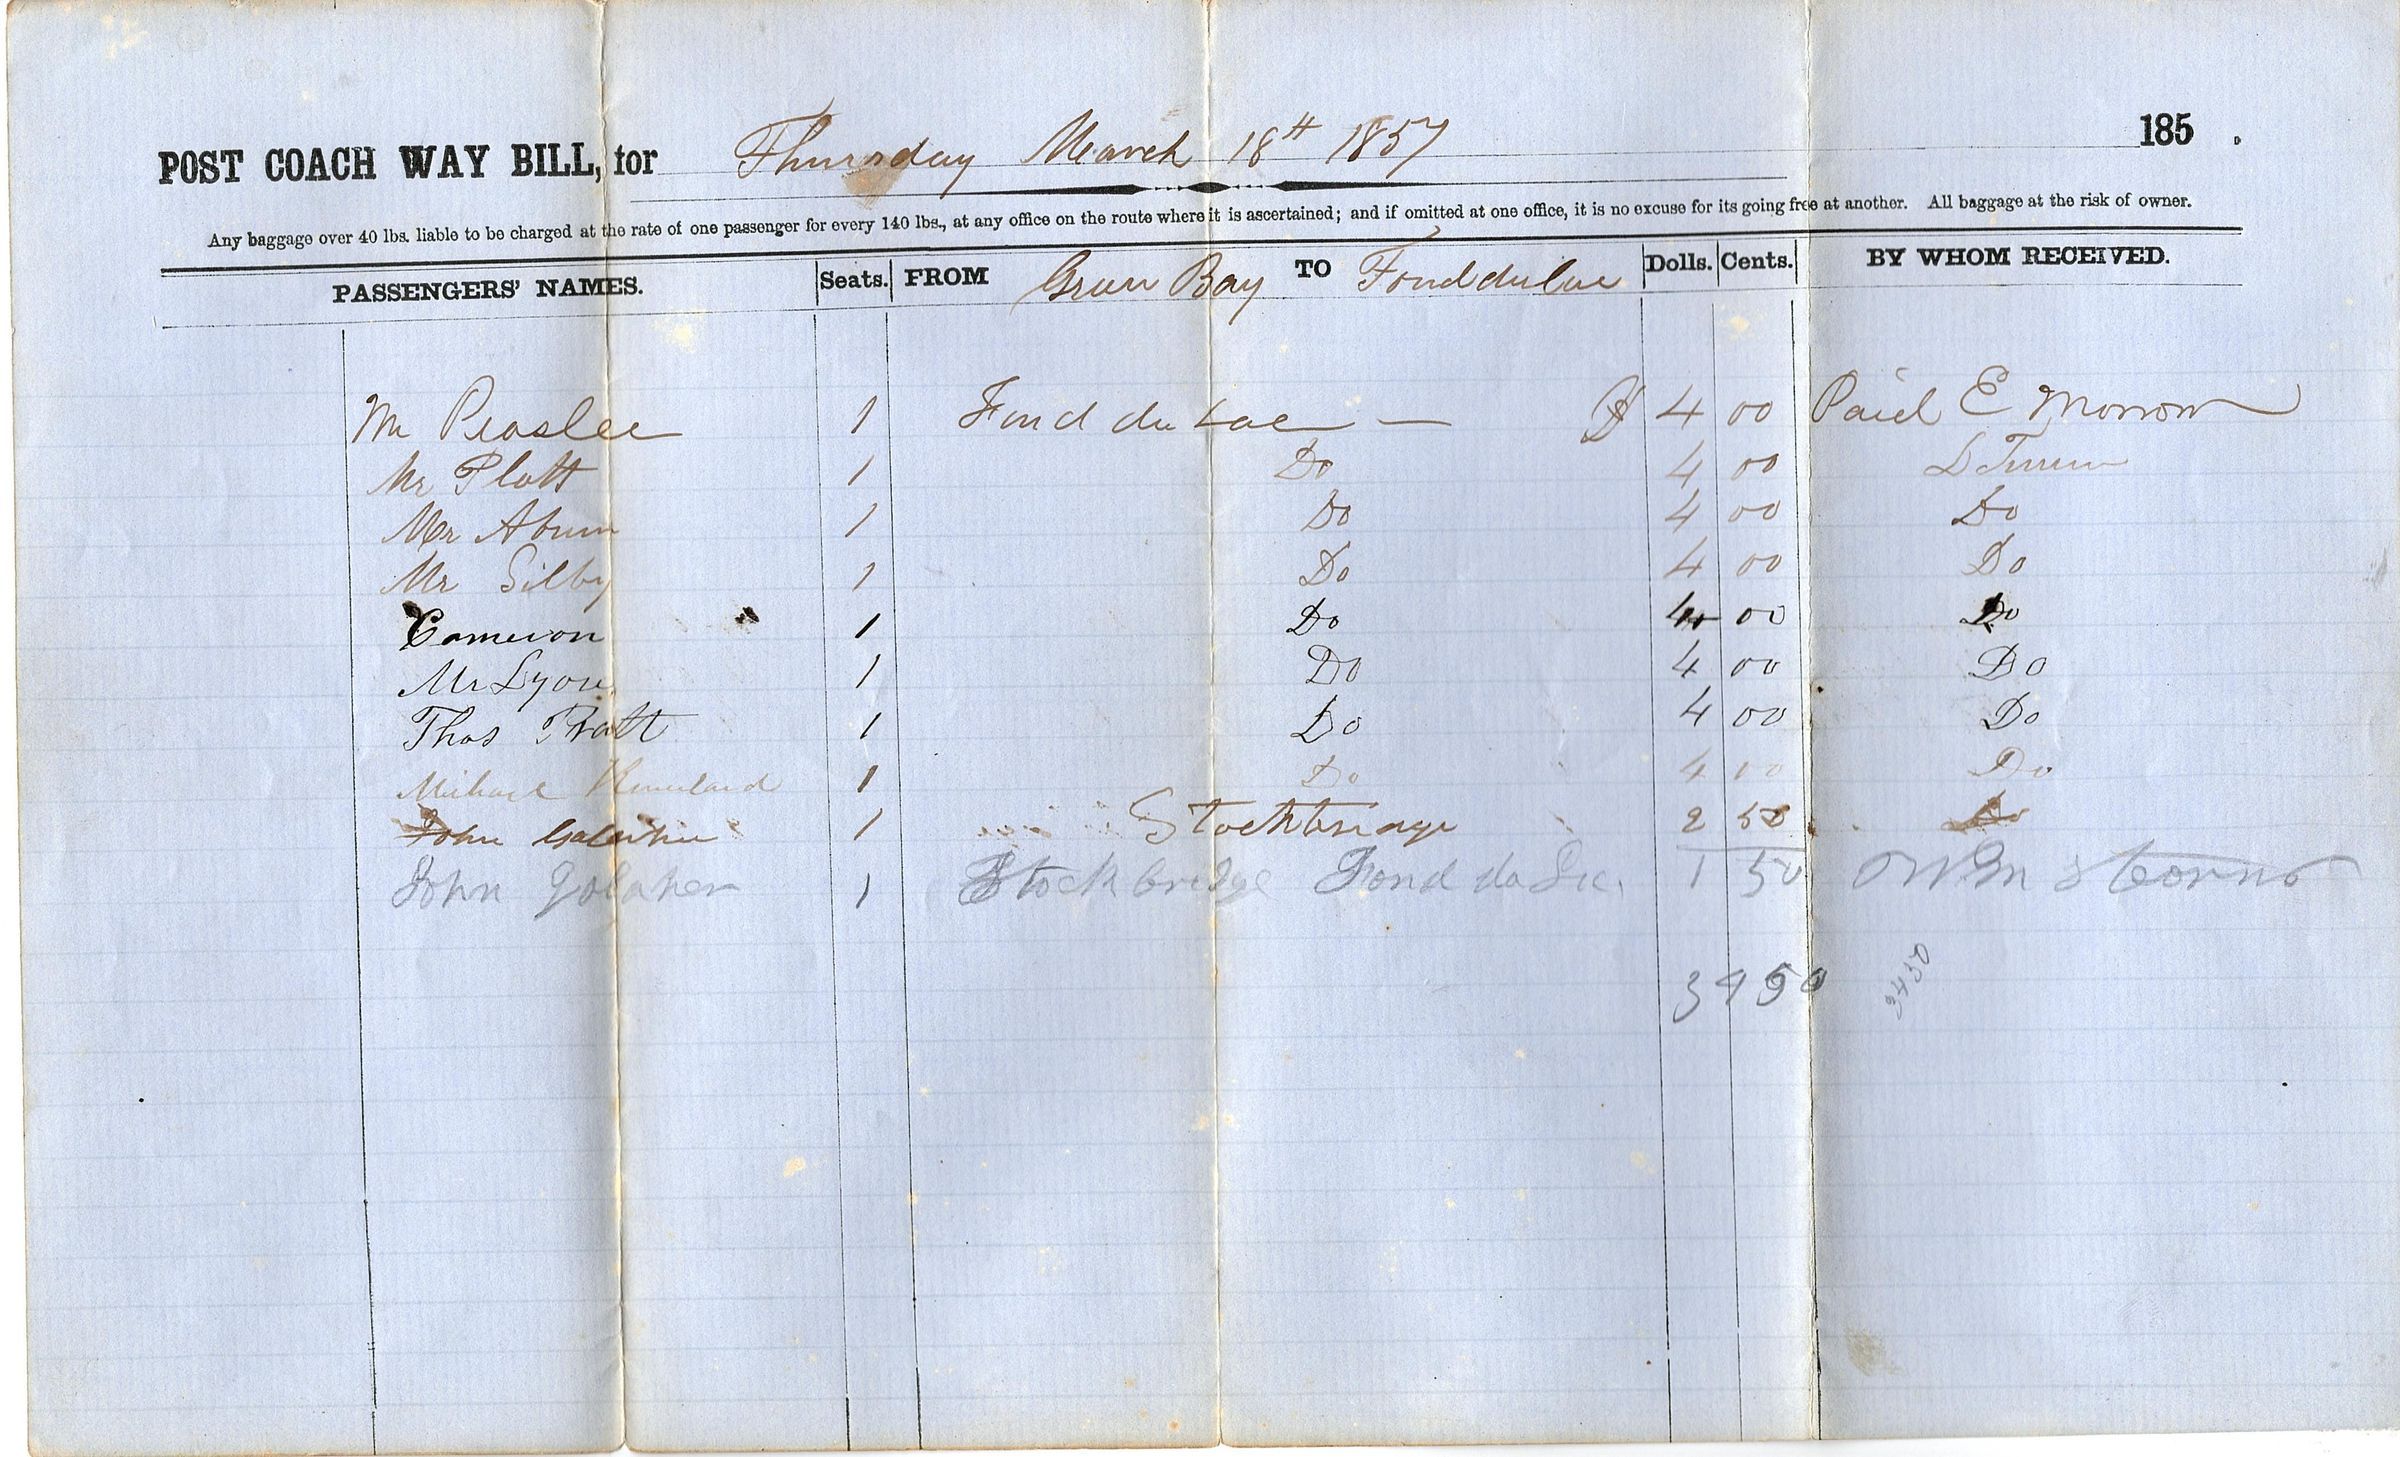 POST COACH WAY BILL, for Thursday March 18th 1857 185 .
Any baggage over 40 lbs. liable to be charged at the rate of one passenger for every 140 lbs., at any office on the route where it is ascertained; and if omitted at one office, it is no excuse for its going free at another. All baggage at the risk of owner.
PASSENGERS' NAMES. Seats. FROM Green Bay TO Fond du Lac Dolls. Cents. BY WHOM RECEIVED.
Mr Peaslee 1 Fond du Lac — $ 4 00 Paid E Morrow
Mr Platt 1 Do 4 00
Mr 1 Do 4 00 Do
Mr Silby 1 Do 4 00 Do
Cameron 1 Do 4 00 Do
Mr Lyon 1 Do 4 00 Do
Thos Pratt 1 Do 4 00 Do
Michael 1 Do 4 00 Do
John 1 Stockbridge 2 50 Do
John 1 Stockbridge Fond du Lac 1 50
34 50 3450